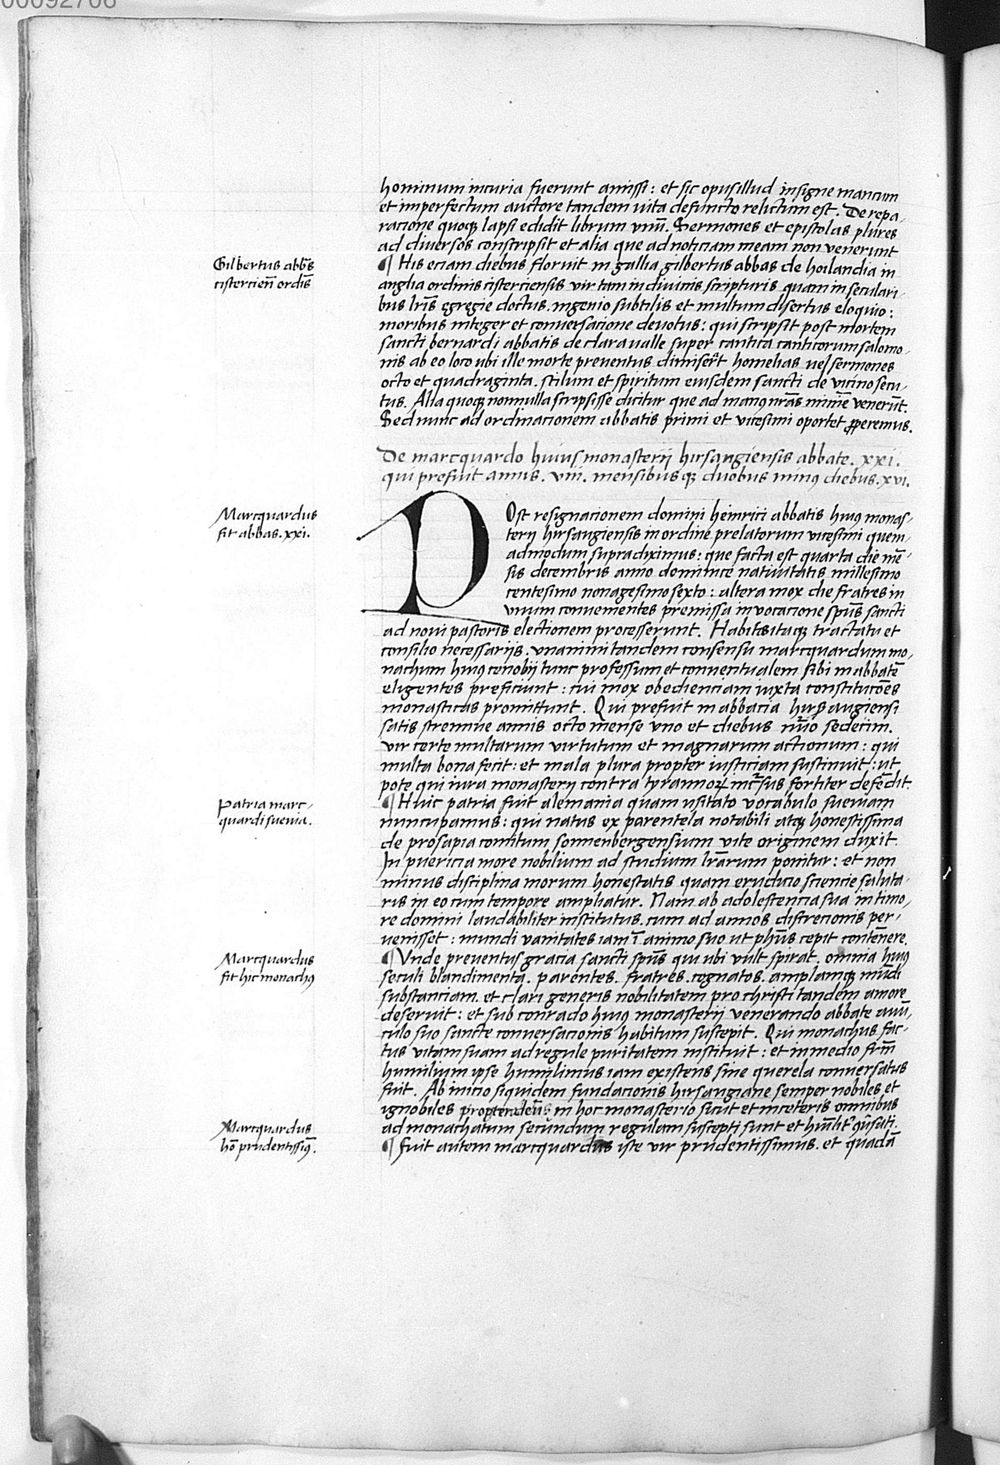 00092706
hominum incuria fuerunt amissi: et sic opus illud insigne mancum
et imperfectum auctore tandem uita defuncto relictum est. De repa
racione quoqꝫ lapsi edidit librum vnū. Sermones et epistolas plures
ad diuersos conscripsit et alia que ad noticiam meam non venerunt
Gilbertus abb̄s
cistercieñ ordīs
¶ His eciam diebus floruit in gallia gilbertus abbas de hoilandia in
anglia ordinis cisterciensis vir tam in diuinis scripturis quam in seculari-
bus lr̄is egregie doctus. ingenio subtilis et multum disertus eloquio:
moribus integer et conuersacione deuotus: qui scripsit post mortem
sancti bernardi abbatis de claraualle super cantica canticorum salomo-
nis ab eo loco ubi ille morte preuentus dimiserat homelias vel sermones
octo et quadraginta. stilum et spiritum eiusdem sancti de vicino secu-
tus. Alia quoqꝫ nonnulla scripsisse dicitur que ad manꝰ nr̄as minīe venerūt.
Sed nunc ad ordinacionem abbatis primi et vicesimi oportet ꝓperemus.
De marcquardo huius monasterij hirsangiensis abbate. xxi.
qui prefuit annis. viii. mensibusqꝫ duobus minꝰ diebus. xvi.
Marcquardus
fit abbas. xxi.
POst resignacionem domini heinrici abbatis huiꝰ monas-
terij hirsaugiensis in ordine prelatorum vicesimi quem-
admodum supradiximus: que facta est quarta die mē-
sis decembris anno dominice natiuitatis millesimo
centesimo nonagesimo sexto: altera mox die fratres in
vnum conuenientes premissa inuocacione spūs sancti
ad noui pastoris electionem processerunt. Habitis itaqꝫ tractatu et
consilio necessarijs. vnanimi tandem consensu marcquardum mo-
nachum huiꝰ cenobij tunc professum et conuentualem sibi in abbatē
eligentes preficiunt: cui mox obedienciam iuxta constitucōes
monasticas promittunt. Qui prefuit in abbacia hirsaugiensi
satis strennue annis octo mense vno et diebus sedecim.
vir certe multarum virtutum et magnarum actionum: qui
multa bona fecit: et mala plura propter iusticiam sustinuit: ut
pote qui iura monasterij contra tyrannoꝝ incursus fortiter defēdit.
Patria marc-
quardi sueuia.
¶ Huic patria fuit alemania quam usitato vocabulo sueuiam
nuncupamus: qui natus ex parentela notabili atqꝫ honestissima
de prosapia comitum sonnenbergensium vite originem duxit.
In puericia more nobilium ad studium lr̄arum ponitur: et non
minus disciplina morum honestatis quam erudicio sciencie saluta-
ris in eo cum tempore ampliatur. Nam ab adolescencia sua in timo-
re domini laudabiliter institutus. cum ad annos discrecionis per-
uenisset: mundi vanitates iam ī animo suo ut phūs cepit contēnere.
Marcquardus
fit hic monachꝰ
¶ Vnde preuentus gracia sancti spūs qui ubi vult spirat. omnia huiꝰ
seculi blandimenta. parentes. fratres. cognatos. amplamqꝫ mūdi
substanciam. et clari generis nobilitatem pro christi tandem amore
deseruit: et sub conrado huiꝰ monasterij venerando abbate auū-
culo suo sancte conuersacionis habitum suscepit. Qui monachus fac-
tus vitam suam ad regule puritatem instituit: et in medio frm̄
humilium ipse humilimus iam existens sine querela conuersatus
fuit. Ab inicio siquidem fundacionis hirsangiane semper nobiles et
ignobiles in hoc monasterio sicut et in ceteris omnibus
ad monachatum secundum regulam suscepti sunt et
Marcquardus
hō prudentissiꝰ.
¶ Fuit autem marcquardus iste vir prudentissimus. et quadā